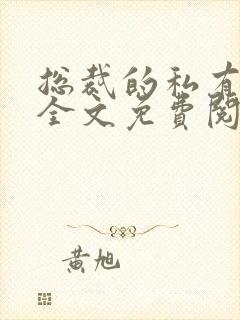 总裁的私有
全文免费阅
黄旭